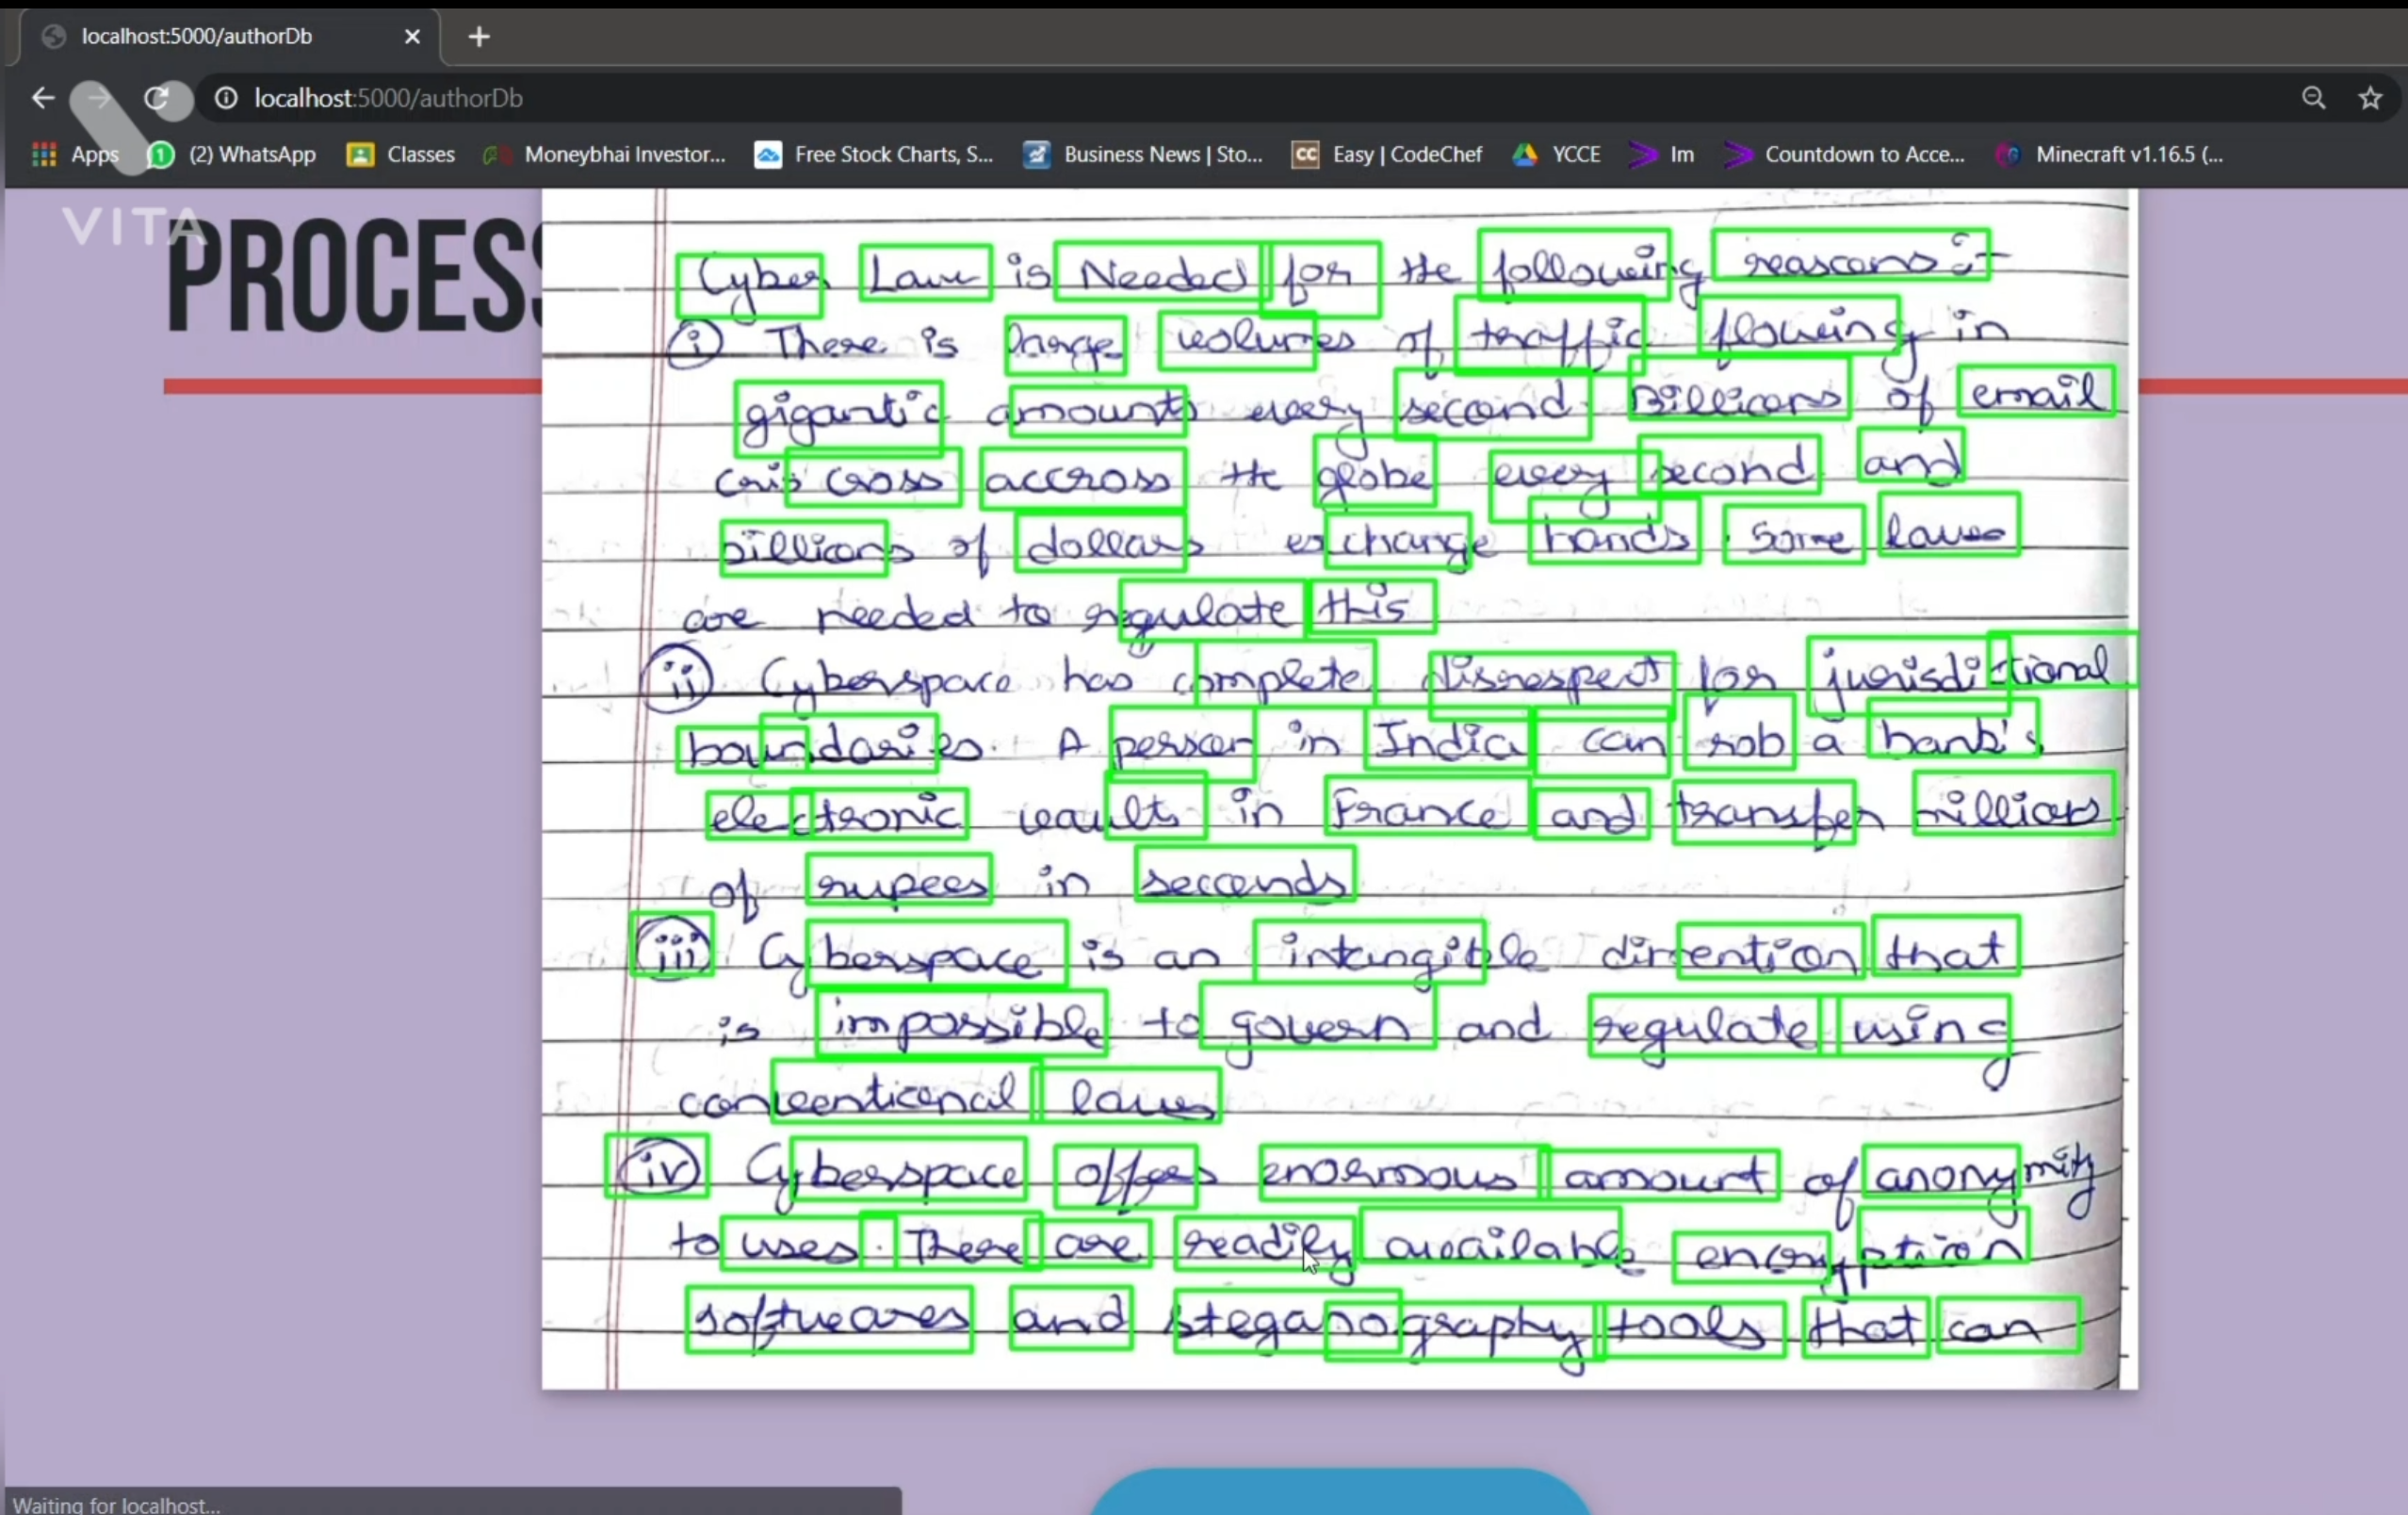 localhost:5000/authorDb
localhost:5000/authorDb
Apps (2) WhatsApp Classes Moneybhai Investor... Free Stock Charts, S... Business News | Sto... CC Easy | CodeChef YCCE Im Countdown to Acce... Minecraft v1.16.5 (...
VITA
PROCESS
Cyber Law is Needed for the following reasons :-
(i) There is large volumes of traffic flowing in
gigantic amounts every second. Billions of email
cris cross accross the globe every second and
billions of dollars exchange hands. Some laws
are needed to regulate this
(ii) Cyberspace has complete disrespect for jurisdictional
boundaries. A person in India can rob a bank's
electronic vault in France and transfer millions
of rupees in seconds
(iii) Cyberspace is an intangible dimention that
is impossible to govern and regulate using
conventional laws
(iv) Cyberspace offers enormous amount of anonymity
to uses. There are readily available encryption
softwares and steganography tools that can
Waiting for localhost...